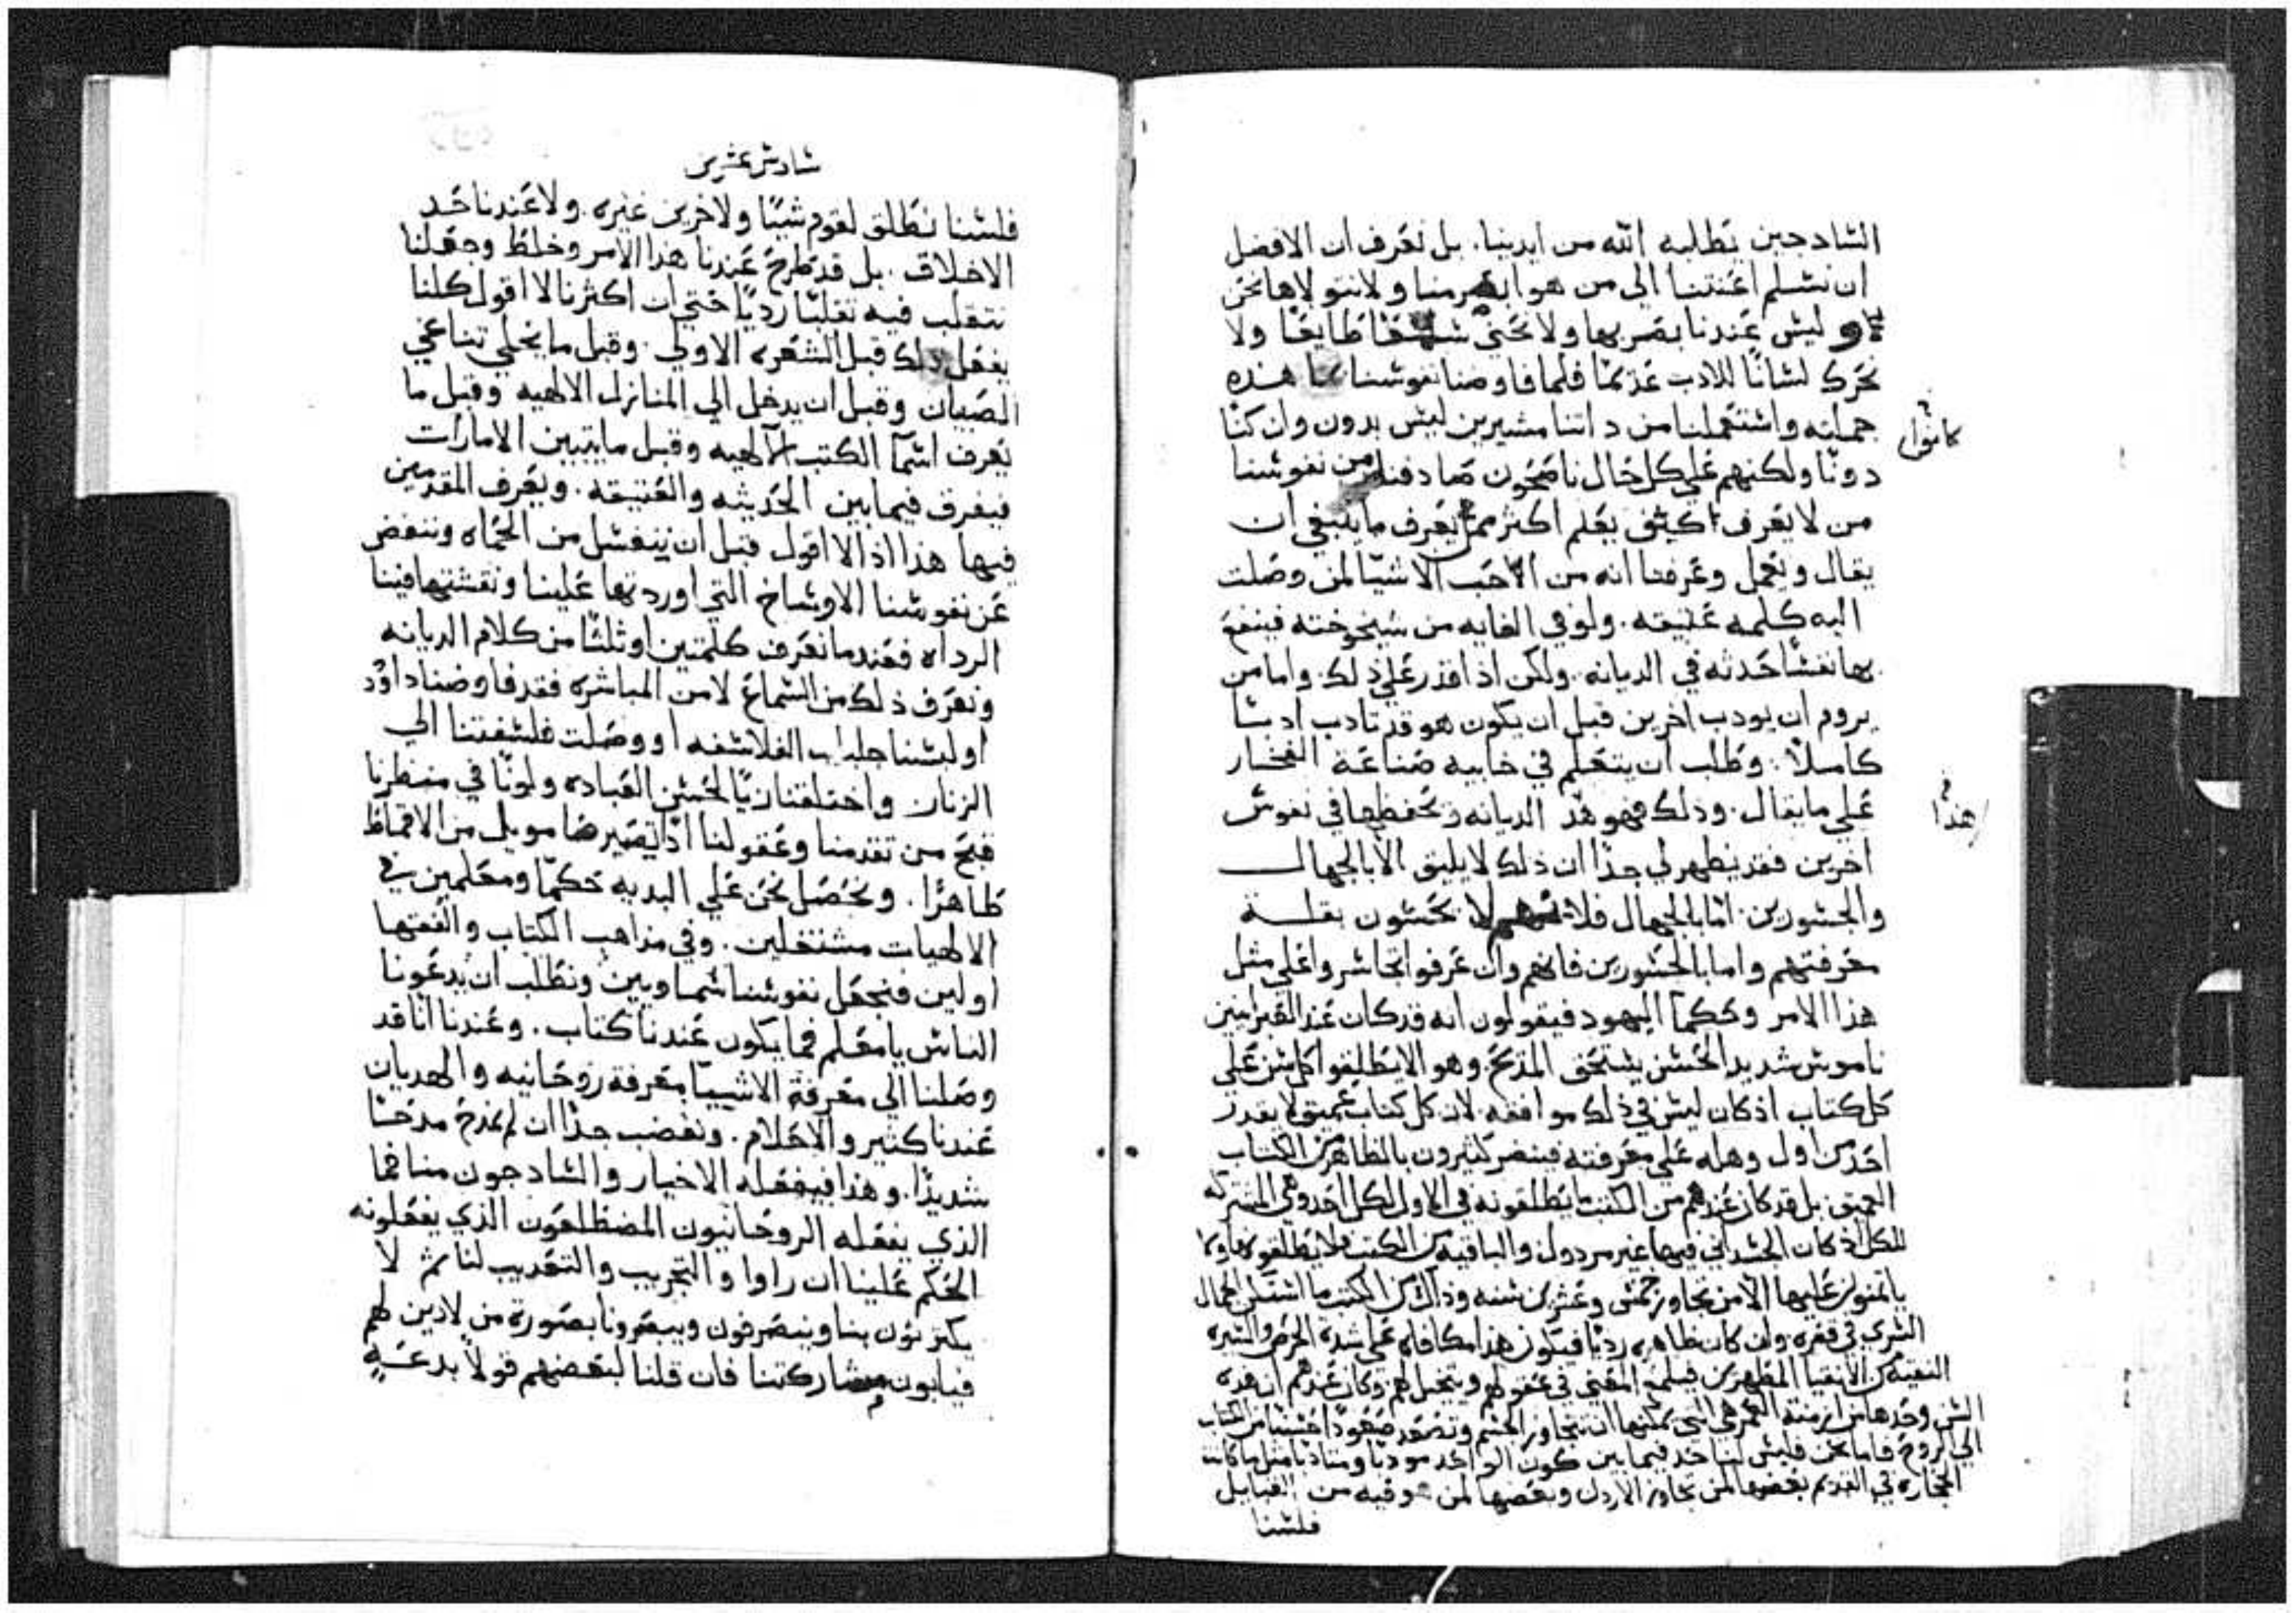 الشادجين يطلبه الله من ايدينا. بل نعرف ان الافضل
ان نشلم اعنتنا الي من هو ابصر منا ولا نتولاها نحن
ليش عندنا بصر بها ولا نحني ولا
نحرك لشانًا للادب عدمًا فلما فاوضنا نفوشنا هذه
جملته واشتعملنا من داتنا مشيرين ليش بدون وان كنا
كانوا
دونًا ولكنهم علي كل حال ناصحون صادفنا من نفوشنا
من لا يعرف كيف يعلم اكثر ممن يعرف ما ينبغي ان
يقال ويعمل وعرفنا انه من الاحب الاشيا لمن وصلت
اليه كلمه عتيقه. ولو في الغايه من شيخوخته فينفع
بها نفشًا حدثه في الديانه. ولكن اذا قدر علي ذلك واما من
يروم ان يودب اخرين قبل ان يكون هو قد تادب ادبًا
كاملًا. وطلب ان يتعلم في خابيه صناعة الفخار
علي ما يقال. ودلك فهو هذ الديانه ويحفظها في نفوش
هذا
اخرين فقد يظهر لي جدًا ان ذلك لا يليق الا بالجهال
والجشورين. اما بالجهال فلا نهم لا يحشون بقلة
معرفتهم واما بالجشورين فانهم وان عرفوا تجاشروا علي مثل
هذا الامر وحكما اليهود فيقولون انه قد كان عند العبرانيين
ناموش شديد الحشن يشتحق المدح وهو الا يطلقوا كل شن علي
كل كتاب اذ كان ليش في ذلك موافقه لان كل كتاب عميق لا يقدر
احد من اول وهله علي معرفته فينضر كثيرون بالظاهر من الكتاب
العميق بل قد كان عندهم من الكتب ما يطلقونه في الاول لكل احد وهي المشتركه
للكل اذ كان الجشداني فيها غير مردول والباقيه من الكتب فلا يطلقونها ولا
ياتمنون عليها الا من تجاوز خمش وعشرين شنه وذاك من الكتب ما اشتمل الجمال
الشري في قعره وان كان ظاهره رديًا فيكون هذا مكافاه علي شدة الحرص والشيره
النقيه من الانقيا المطهرين فيلمع المعني في عقولهم ويتخيل لهم وكان عندهم ان هذه
الشن وحدها من ازمنة العمر هي التي يمكنها ان تتجاوز الجشم وتصعد صعودًا حشنًا من الكتاب
الي الروح فاما نحن فليش لنا حد فيما بين كون الواحد مودبًا ومتادبًا مثل ما كانت
الحجاره في القديم بعضها لمن تجاوز الاردن وبعضها لمن هو فيه من القبايل
فلشنا
شادش عشرين
فلشنا نطلق لقوم شيًا ولاخرين غيره. ولا عندنا حد
الاخلاق. بل قد طرح عندنا هذا الامر وخلط وجعلنا
نتقلب فيه تقلبًا رديًا حتي ان اكثرنا لا اقول كلنا
يفعل دلك قبل الشعره الاولي. وقبل ما يخلي تناغي
الصبيان وقبل ان يدخل الي المنازل الالهيه وقبل ما
يعرف اشمآ الكتب الالهيه وقبل ما يتبين الامارات
فيفرق فيما بين الحديثه والعتيقه. ويعرف المقدمين
فيها هذا اذ الا اقول قبل ان يتغشل من الحماه وننفض
عن نفوشنا الاوشاخ التي اوردتها علينا ونقشتها فينا
الرداه فعند ما نعرف كلمتين او ثلثًا من كلام الديانه
ونعرف ذلك من الشماع لا من المباشره فقد فاوضنا داوود
او لبشنا جلباب الفلاشفه او وصلت فلشفتنا الي
الزنار واختلقنا زيًا لحشن العباده ولونًا في منظرنا
فتح من تقدمنا وعقولنا اذا ليصير ضامويل من الاقماط
طاهرًا. ونحصل نحن علي البديه حكمًا ومعلمين في
الالهيات مشتغلين. وفي مذاهب الكتاب والفقها
اولين فنجعل نفوشنا شماويين ونطلب ان يدعونا
الناش يا معلم فما يكون عندنا كتاب. وعندنا انا قد
وصلنا الي معرفة الاشيا معرفة روحانيه والهديان
عندنا كثير والاحلام. ونغضب جدًا ان لم نمدح مدحًا
شديدًا. وهذا فيفعله الاخيار والشادجون منا فما
الذي يفعله الروحانيون المضطلعون الذي يفعلونه
الحكم علينا ان راوا والتجريب والتعديب لنا ثم لا
يكترثون بنا وينصرفون ويبصرونا بصورة من لا دين لهم
فيابون مشاركتنا فان قلنا لبعضهم قولًا بدعةٍ